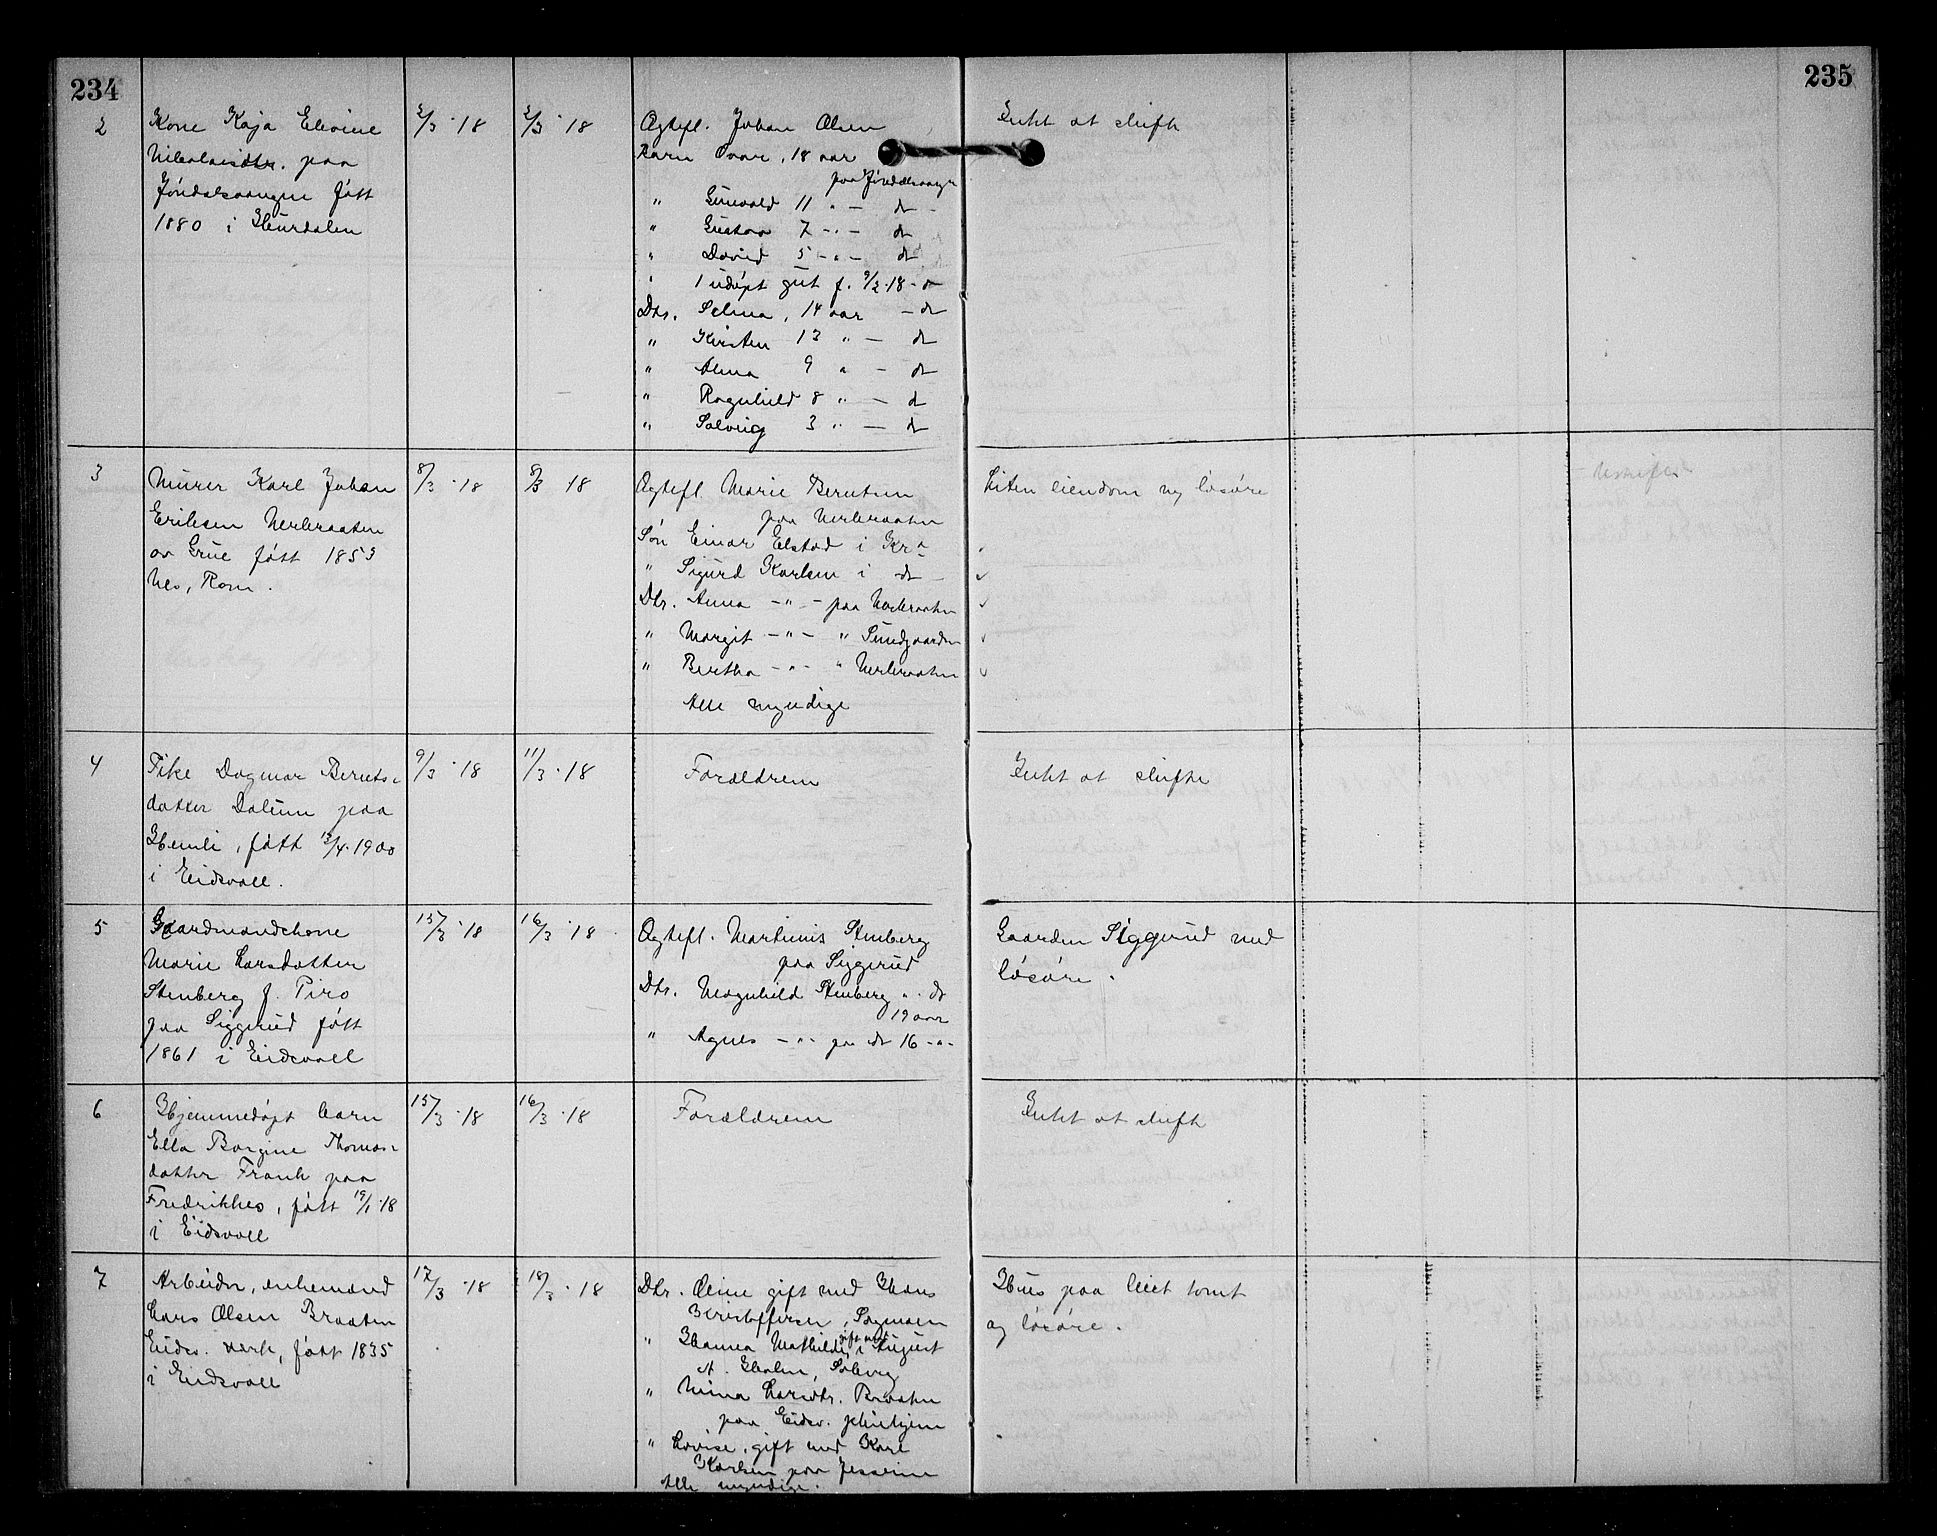 234
235
2
Kone Kaja Elevine
Nikolaisdtr. paa
Jøndalsvangen født
1880 i Hurdalen
2/3 '18
2/3 '18
Ægtefl. Johan Olsen
Barn Ivar, 18 aar
paa Jøndalsvangen
" Gunvald 11 " — dt
" Gustav 7 - " - dt
" David 5 - " - dt
" 1 udøpt gut f. 9/2-18 -
Dtr. Selma, 14 aar - dt
" Kirsten 13 " — dt
" Alma 9 " — dt
" Ragnhild 8 " — dt
" Solveig 3 " — dt
Intet at skifte
3
Murer Karl Johan
Eriksen Verkraaten
av Grue født 1853
Nes, Rom.
8/3 '18
8/3 18
Ægtefl. Marie Berntsen
paa Verkraaten
Søn Einar Elstad i Kr.a
" Sigurd Karlsen i dt
Dtr. Anna - " - paa Verkraaten
" Margit - " - " Sundgaarden
" Bertha - " - " Verkraaten
Alle myndige
Liten eiendom og løsøre
Uskiftet
4
Pike Dagmar Bernts-
datter Dalum paa
Hemli, født 13/4-1900
i Eidsvoll.
9/3 '18
11/3 '18
Forældrene
Intet at skifte
5
Gaardmandskone
Marie Larsdatter
Stenberg f. Piro
paa Siggerud født
1861 i Eidsvoll
15/3 '18
16/3 '18
Ægtefl. Martinius Stenberg
paa Siggerud
Dtr. Magnhild Stenberg " dt
19 aar
" Agnes - " - paa dt 16 - " -
Gaarden Siggerud med
løsøre.
6
Hjemmedøpt barn
Ella Borgine Thomas-
datter Frank paa
Fredrikhes, født 19/1-18
i Eidsvoll
15/3 '18
16/3 '18
Forældrene
Intet at skifte
7
Arbeider, enkemand
Lars Olsen Braaten
Eidsv. verk, født 1835
i Eidsvoll
17/3 '18
18/3 '18
Dtr. Oline gift med Hans
Kristoffersen, Sagmoen
" Hanna Mathilde, gift med August
A. Holm, Solberg
" Mina Larsdtr. Braaten
paa Eidsv. pleiehjem
" Lovise, gift med Karl
Karlsen paa
Alle myndige.
Hus paa leiet tomt
og løsøre.